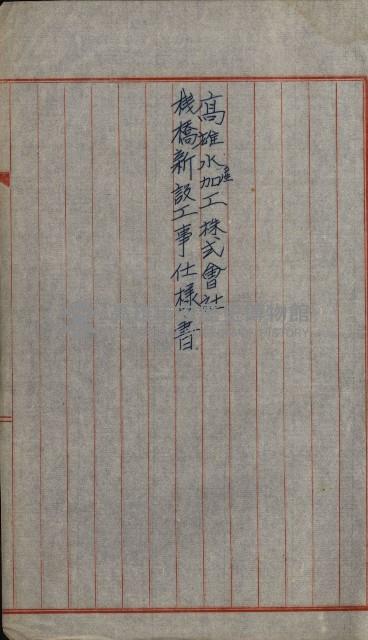 高雄水産加工株式會社
棧橋新設工事仕様書
博物館
HISTORY